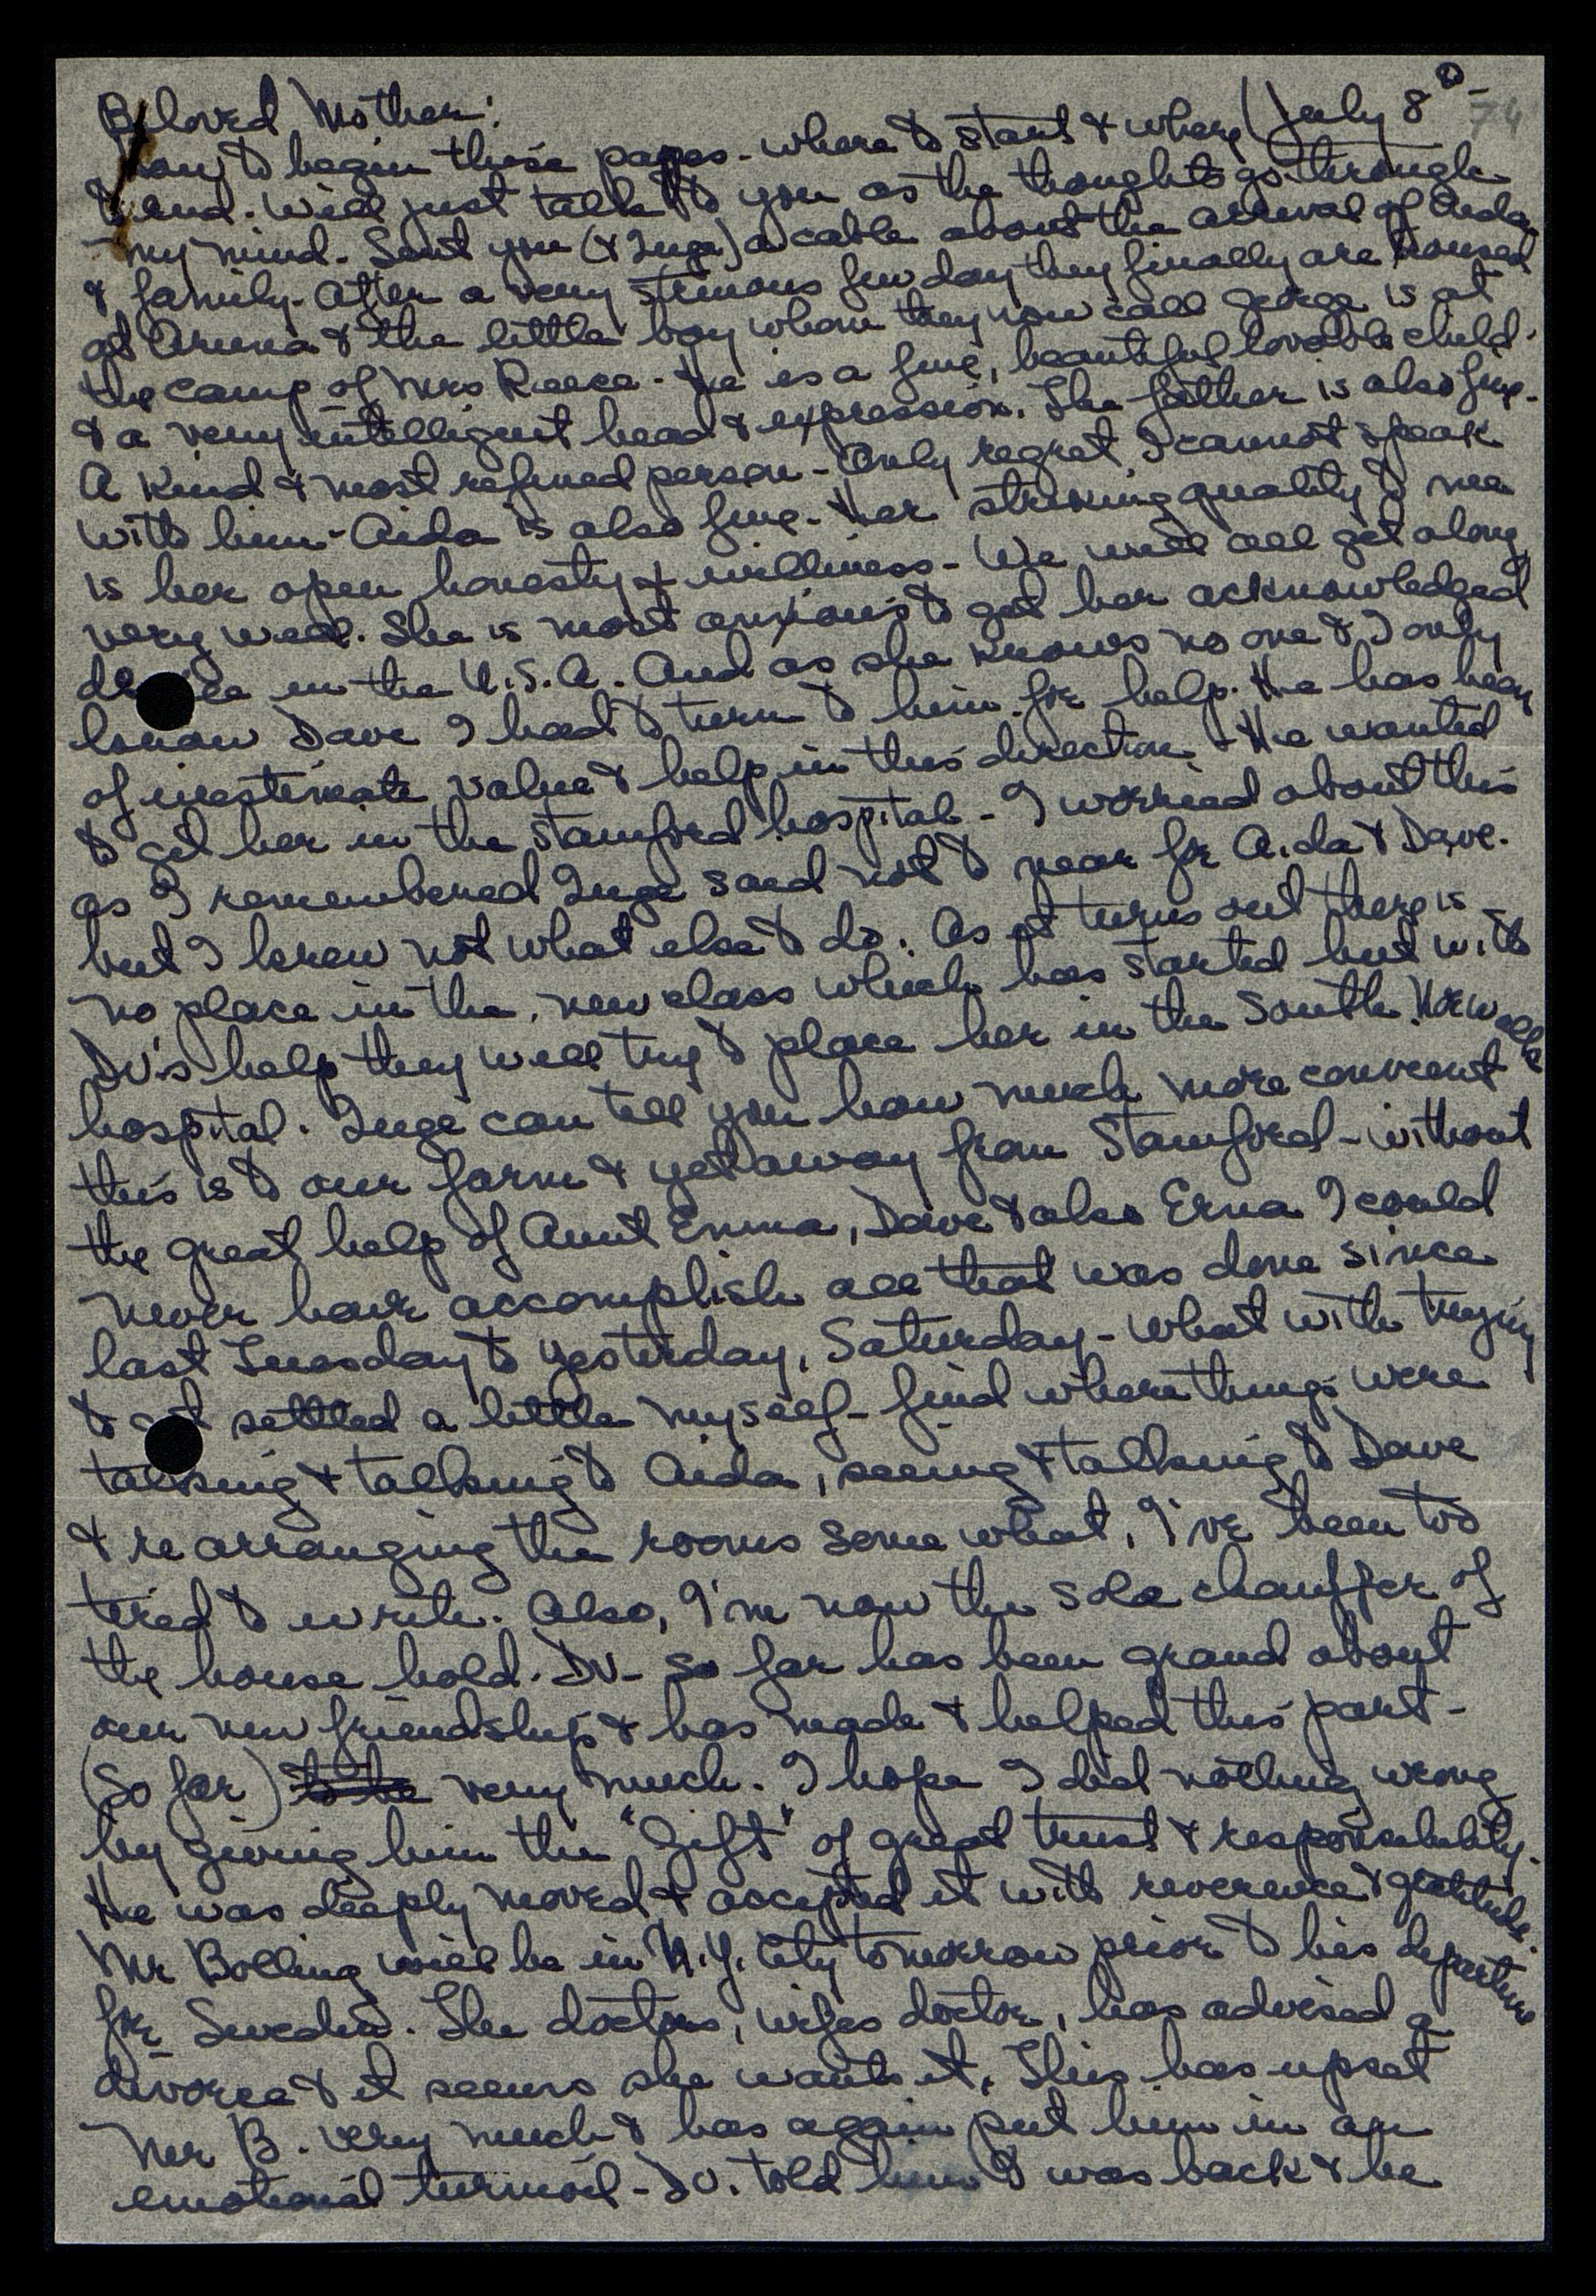 Beloved Mother: July 8th - 74
how to begin these pages - where to start & where
to end. Will just talk to you as the thoughts go through
my mind. Sent you (& Inge) a cable about the arrival of Aida
& family. After a very few day they finally are housed
at & the little boy whom they now call George is at
the camp of Mrs Reece. He is a fine, beautiful lovable child.
& a very intelligent head & expression. The father is also fine.
A kind & most refined person - Only regret, I cannot speak
with him - Aida is also fine. Her striking quality to me
is her open honesty & williness - We will all get along
very well. She is most anxious to get her acknowledged
de ee in the U.S.A. And as she knows no one & I only
know Dave I had to turn to him for help. He has been
of inestimate value & help in this direction. He wanted
to get her in the Stamford hospital - I worried about this
as I remembered Inge said not to near for Aida & Dave.
but I knew not what else to do. As it turns out there is
no place in the new class which has started but with
DV's help they will try to place her in the South Norwalk
hospital. Inge can tell you how much more convient
this is to our farm & yet away from Stamford - without
the great help of Aunt Emma, Dave & also Erna I could
never have accomplish all that was done since
last Tuesday to yesterday, Saturday - What with trying
to get settled a little myself - find where things were
talking & talking to Aida, seeing & talking to Dave
& re arranging the rooms some what, I've been too
tired to write. Also, I'm now the sole chauffer of
the house hold. DV - so far has been grand about
our new friendship & has made & helped this part -
(So far) to the very much. I hope I did nothing wrong
by giving him the "Gift" of great trust & responsibility.
He was deeply moved & accepted it with reverence & gratitude.
Mr Bolling will be in N.Y. City tomorrow prior to his departure
for Sweden. The doctors, wifes doctor, has advised a
divorce & it seems she wants it. This has upset
Mr B. very much & has again put him in an
emotional turmoil - DV. told him I was back & he